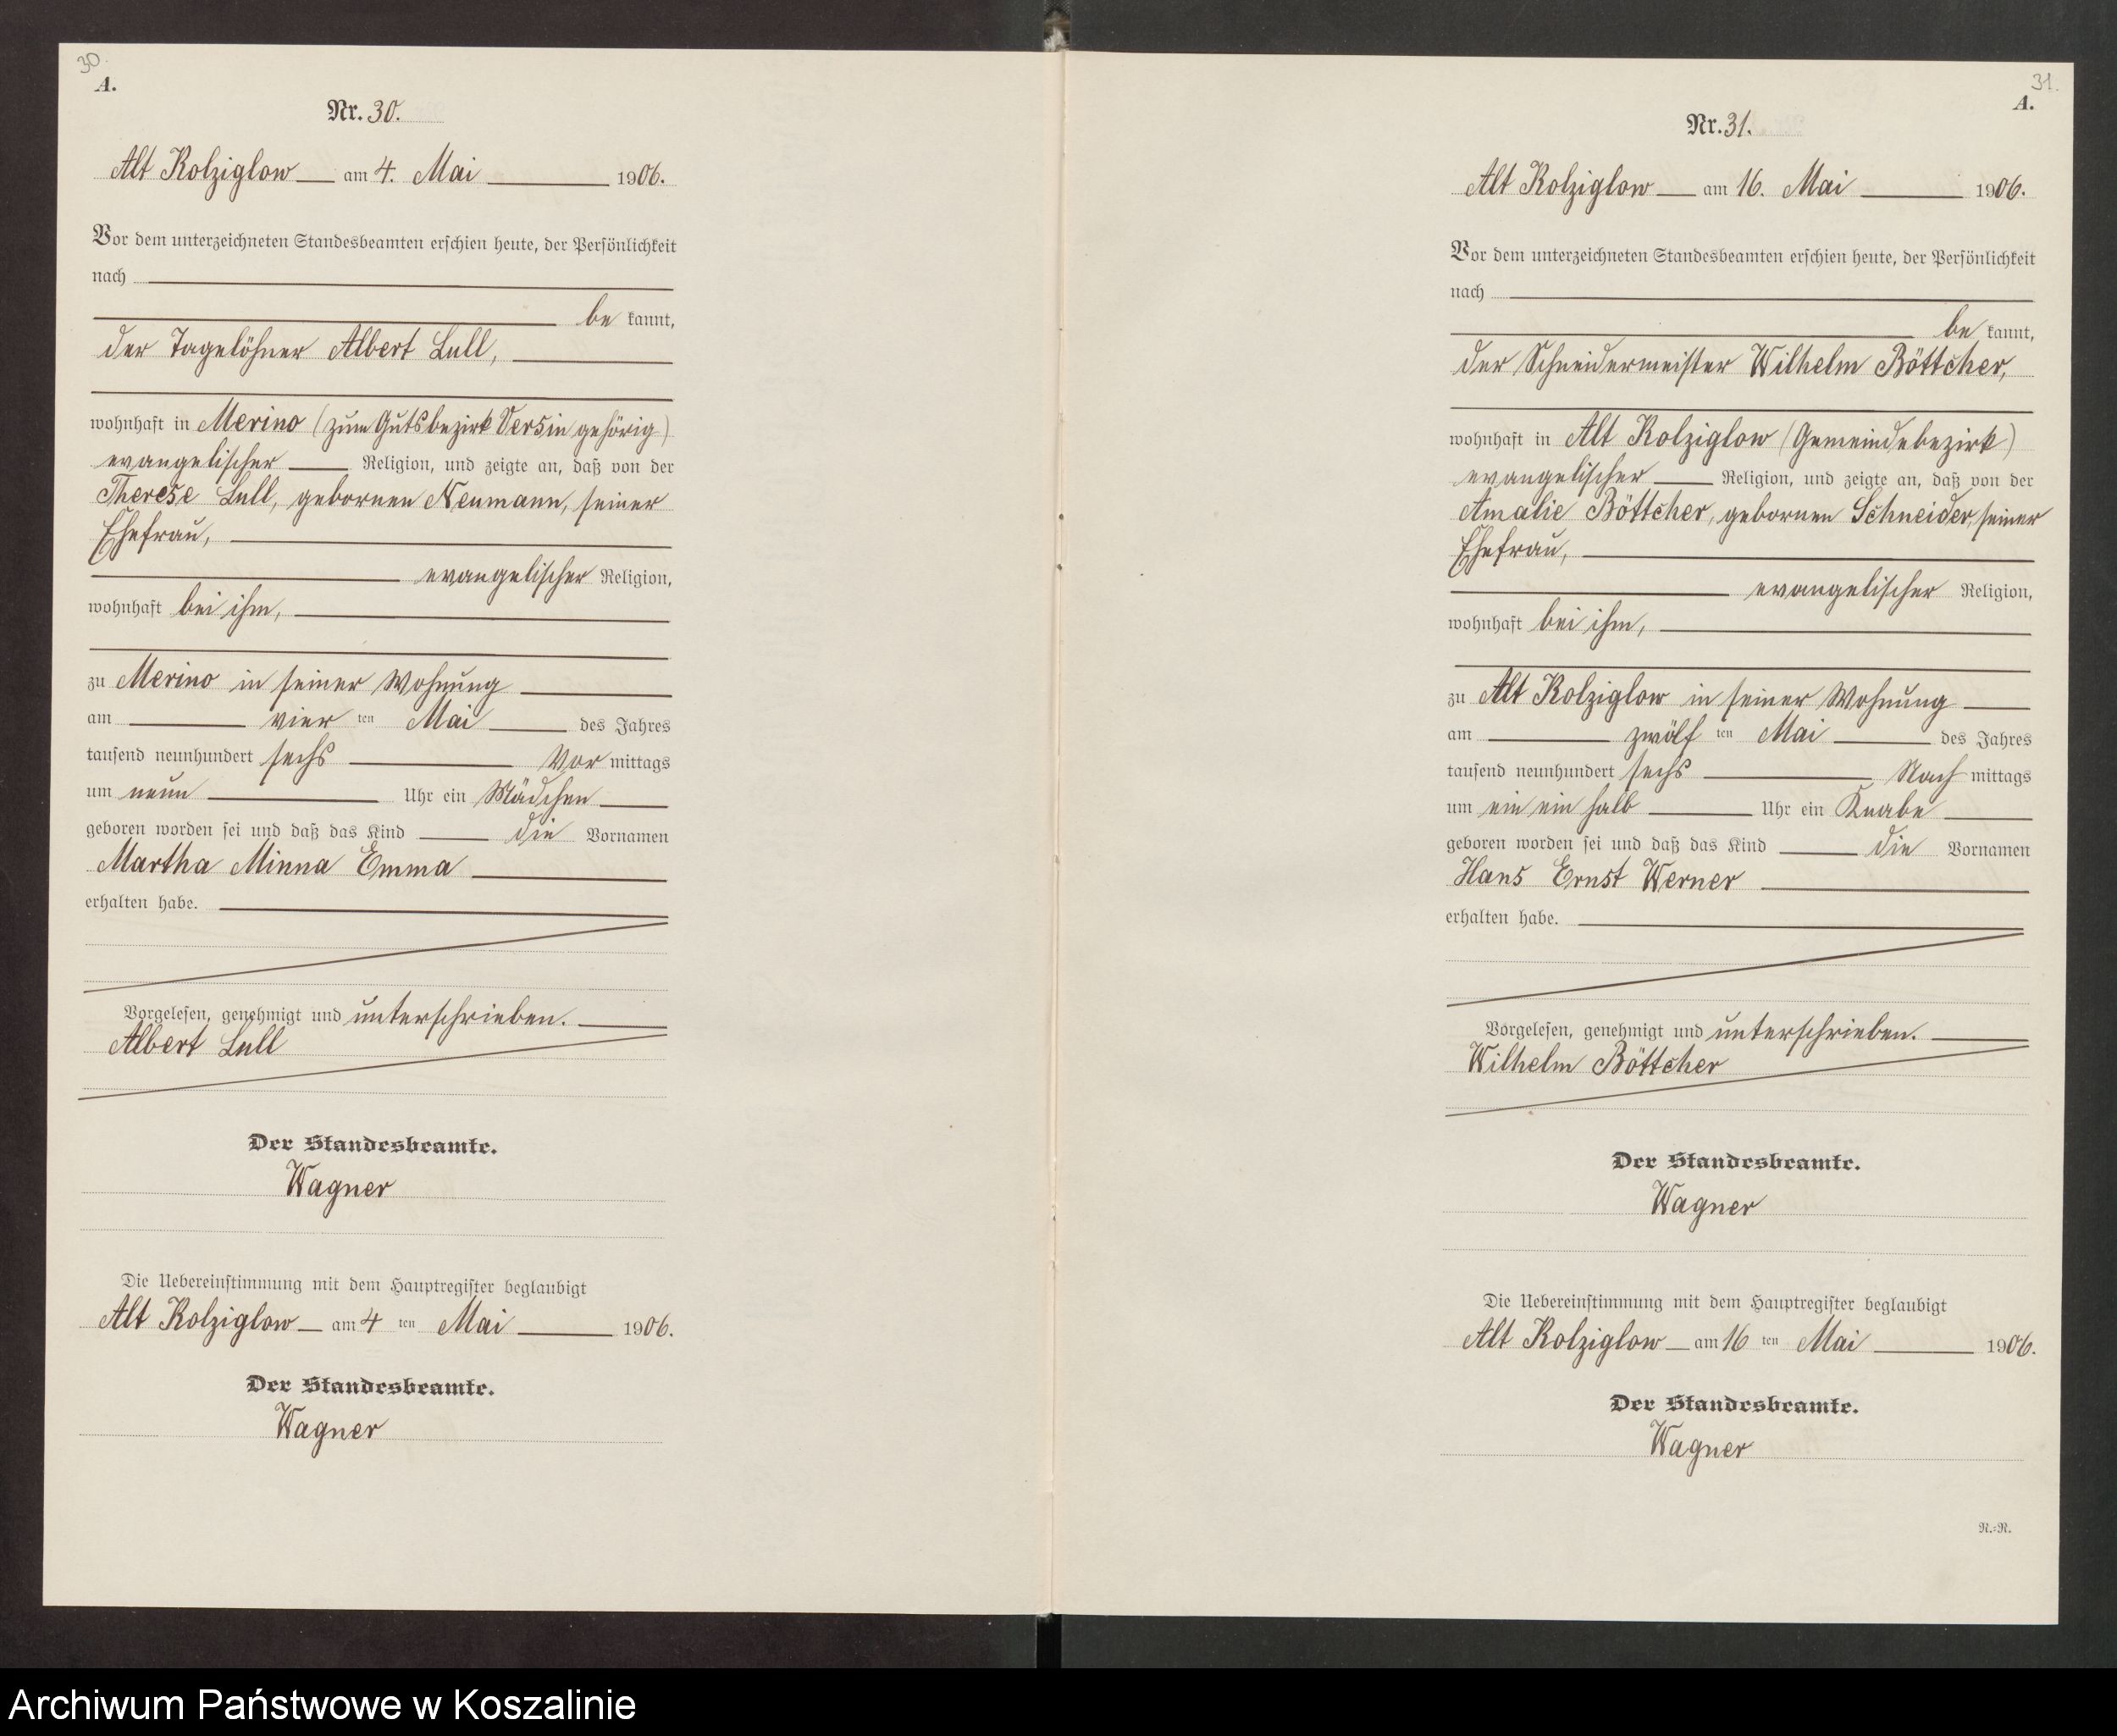 30.
A.
Nr. 30.
Alt Kolziglow am 4. Mai 1906.
Vor dem unterzeichneten Standesbeamten erschien heute, der Persönlichkeit
nach
be kannt,
der Tagelöhner Albert Lull,
wohnhaft in Merino (zum Gutsbezirk Versin gehörig)
evangelischer Religion, und zeigte an, daß von der
Therese Lull, gebornen Neumann, seiner
Ehefrau,
evangelischer Religion,
wohnhaft bei ihm,
zu Merino in seiner Wohnung
am vier ten Mai des Jahres
tausend neunhundert sechs Vor mittags
um neun Uhr ein Mädchen
geboren worden sei und daß das Kind die Vornamen
Martha Minna Emma
erhalten habe.
Vorgelesen, genehmigt und unterschrieben.
Albert Lull
Der Standesbeamte.
Wagner
Die Uebereinstimmung mit dem Hauptregister beglaubigt
Alt Kolziglow am 4 ten Mai 1906.
Der Standesbeamte.
Wagner
31.
A.
Nr. 31.
Alt Kolziglow am 16. Mai 1906.
Vor dem unterzeichneten Standesbeamten erschien heute, der Persönlichkeit
nach
be kannt,
der Schneidermeister Wilhelm Böttcher,
wohnhaft in Alt Kolziglow (Gemeindebezirk)
evangelischer Religion, und zeigte an, daß von der
Amalie Böttcher, gebornen Schneider, seiner
Ehefrau,
evangelischer Religion,
wohnhaft bei ihm,
zu Alt Kolziglow in seiner Wohnung
am zwölf ten Mai des Jahres
tausend neunhundert sechs Nach mittags
um ein ein halb Uhr ein Knabe
geboren worden sei und daß das Kind die Vornamen
Hans Ernst Werner
erhalten habe.
Vorgelesen, genehmigt und unterschrieben.
Wilhelm Böttcher
Der Standesbeamte.
Wagner
Die Uebereinstimmung mit dem Hauptregister beglaubigt
Alt Kolziglow am 16 ten Mai 1906.
Der Standesbeamte.
Wagner
R.=R.
Archiwum Państwowe w Koszalinie